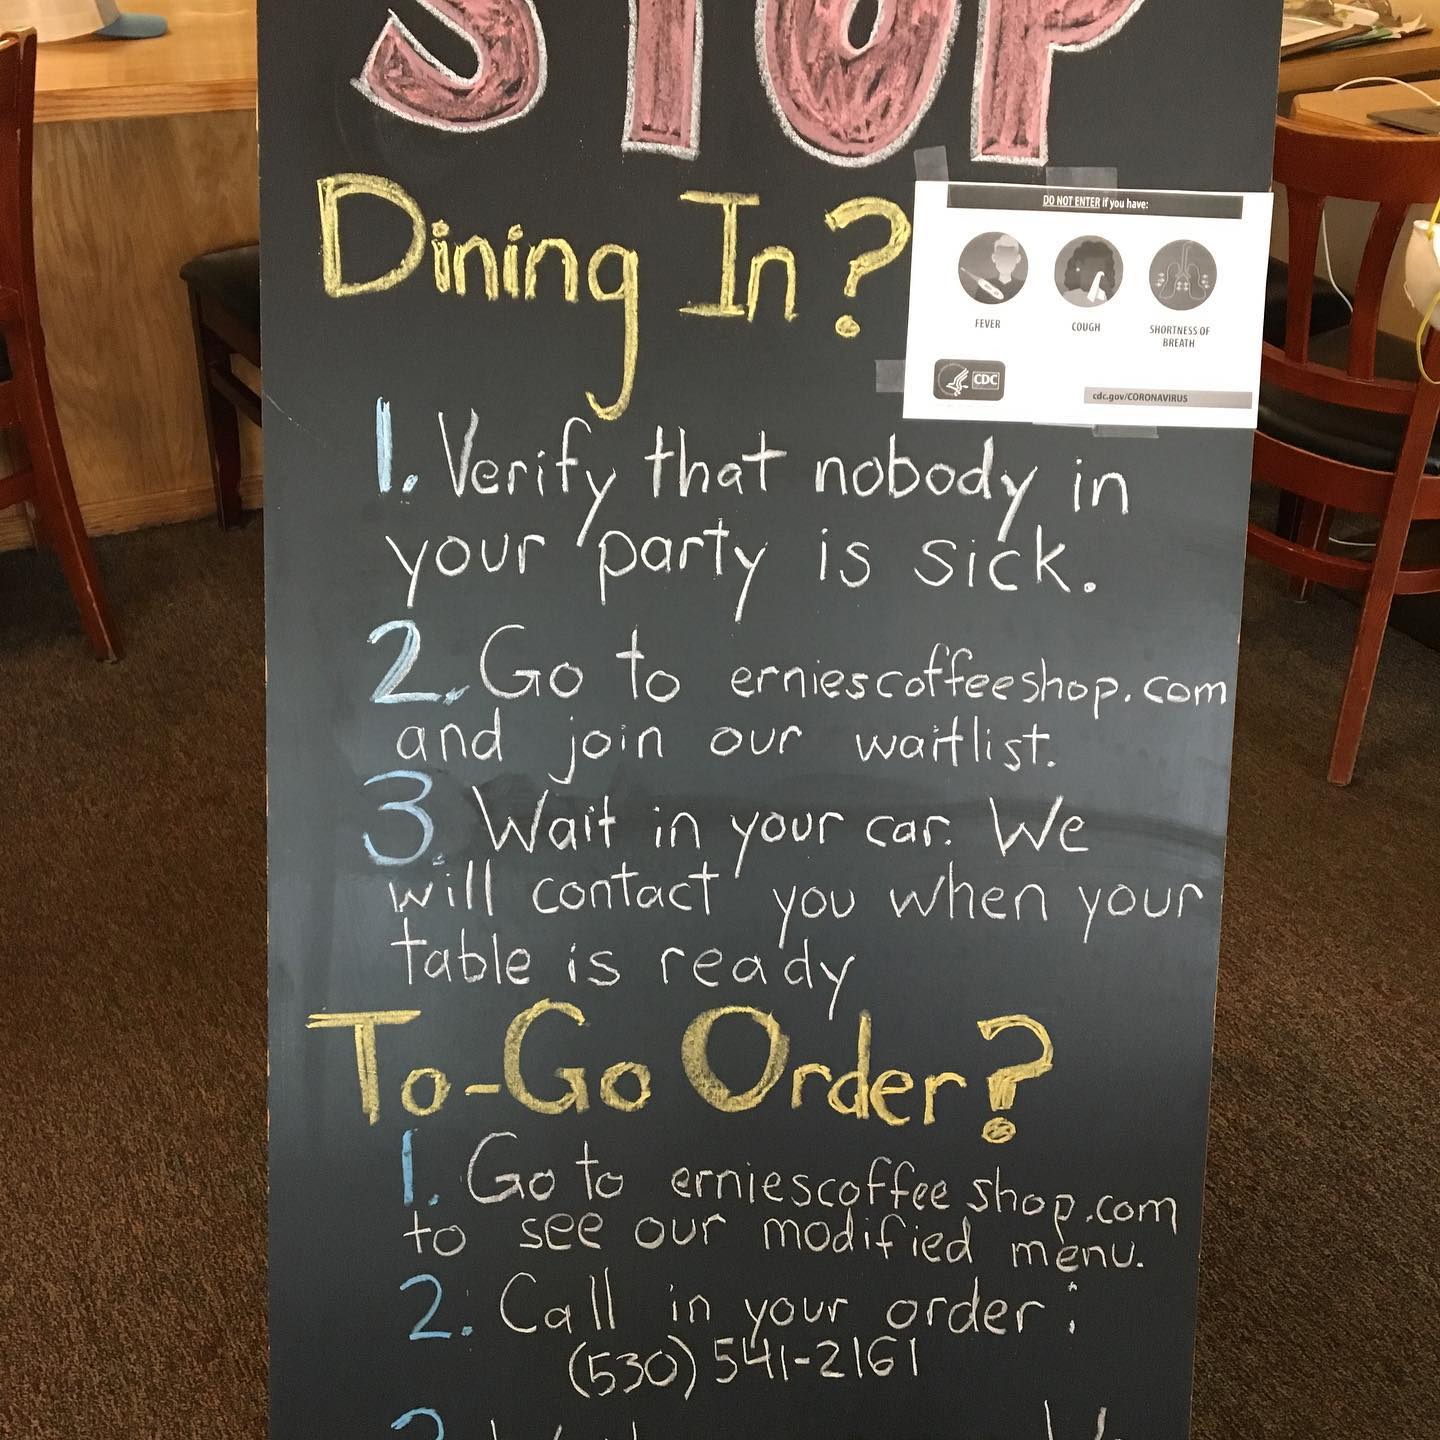 STOP
Dining In?
DO NOT ENTER if you have:
FEVER
COUGH
SHORTNESS OF
BREATH
CDC
cdc.gov/CORONAVIRUS
1. Verify that nobody in
your party is sick.
2. Go to erniescoffeeshop.com
and join our waitlist.
3. Wait in your car. We
will contact you when your
table is ready
To-Go Order?
1. Go to erniescoffeeshop.com
to see our modified menu.
2. Call in your order:
(530) 541-2161